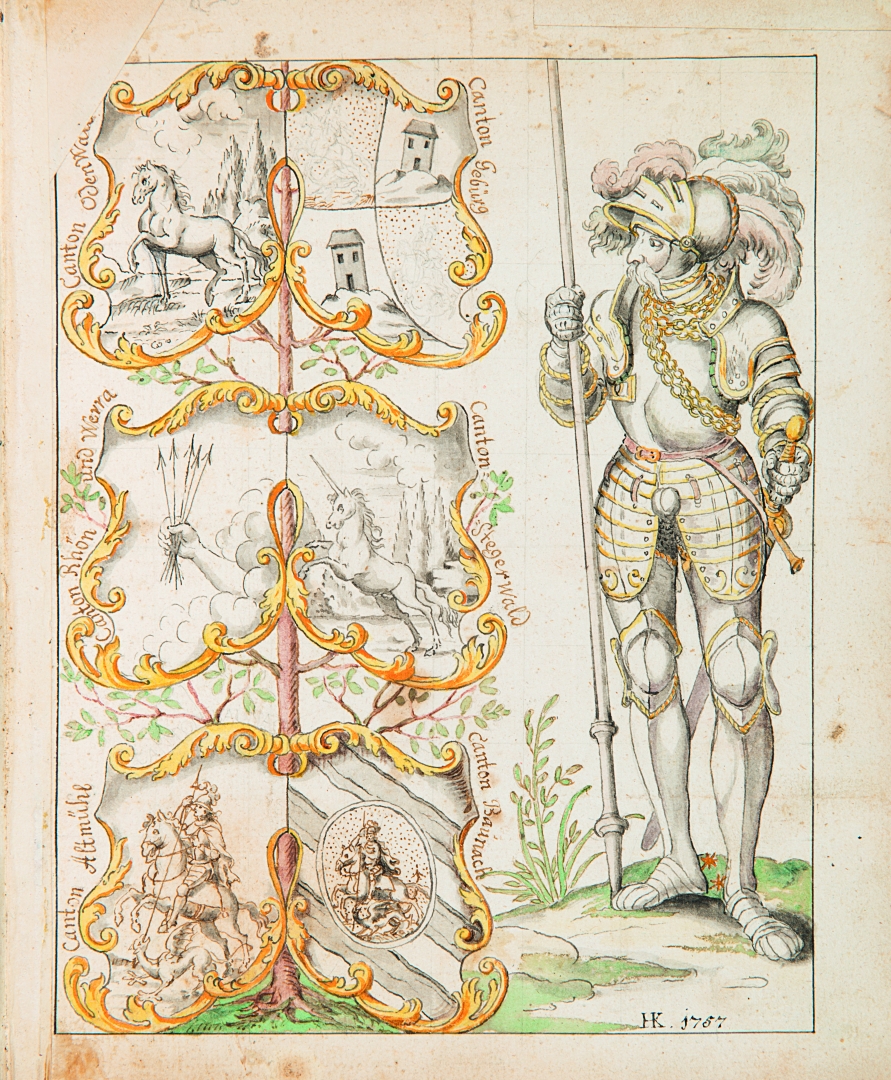 Canton Odenwa
Canton Gebürg
Canton Rhön und Werra
Canton Stegerwald
Canton Altmühl
Canton Baunach
HK. 1757